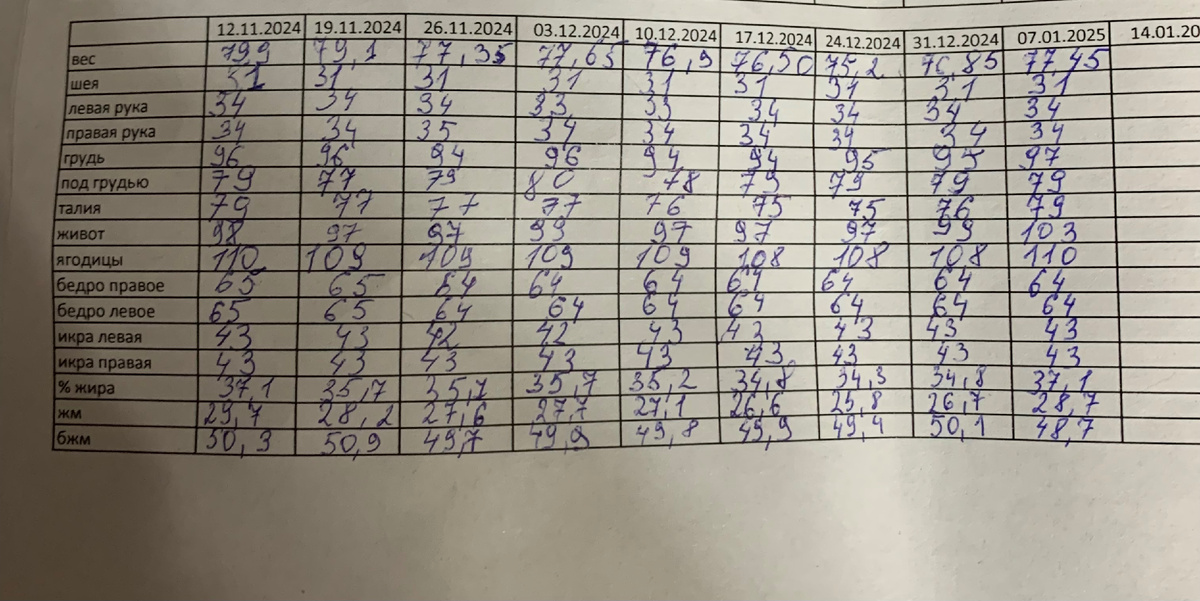 12.11.2024 19.11.2024 26.11.2024 03.12.2024 10.12.2024 17.12.2024 24.12.2024 31.12.2024 07.01.2025 14.01.20
вес 79,9 79,1 77,35 77,65 76,9 76,50 75,2 76,85 77,45
шея 31 31 31 31 31 31 31 31 31
левая рука 34 34 34 33 33 34 34 34 34
правая рука 34 34 35 34 34 34 34 34 34
грудь 96 96 94 96 94 94 95 95 97
под грудью 79 77 79 80 78 79 79 79 79
талия 79 77 77 77 76 75 75 76 79
живот 98 97 97 99 97 97 97 99 103
ягодицы 110 109 109 109 109 108 108 108 110
бедро правое 65 65 64 64 64 64 64 64 64
бедро левое 65 65 64 64 64 64 64 64 64
икра левая 43 43 42 42 43 43 43 43 43
икра правая 43 43 43 43 43 43 43 43 43
% жира 37,1 35,7 35,7 35,7 35,2 34,8 34,3 34,8 37,1
жм 29,7 28,2 27,6 27,7 27,1 26,6 25,8 26,7 28,7
бжм 50,3 50,9 49,7 49,9 49,8 49,9 49,4 50,1 48,7